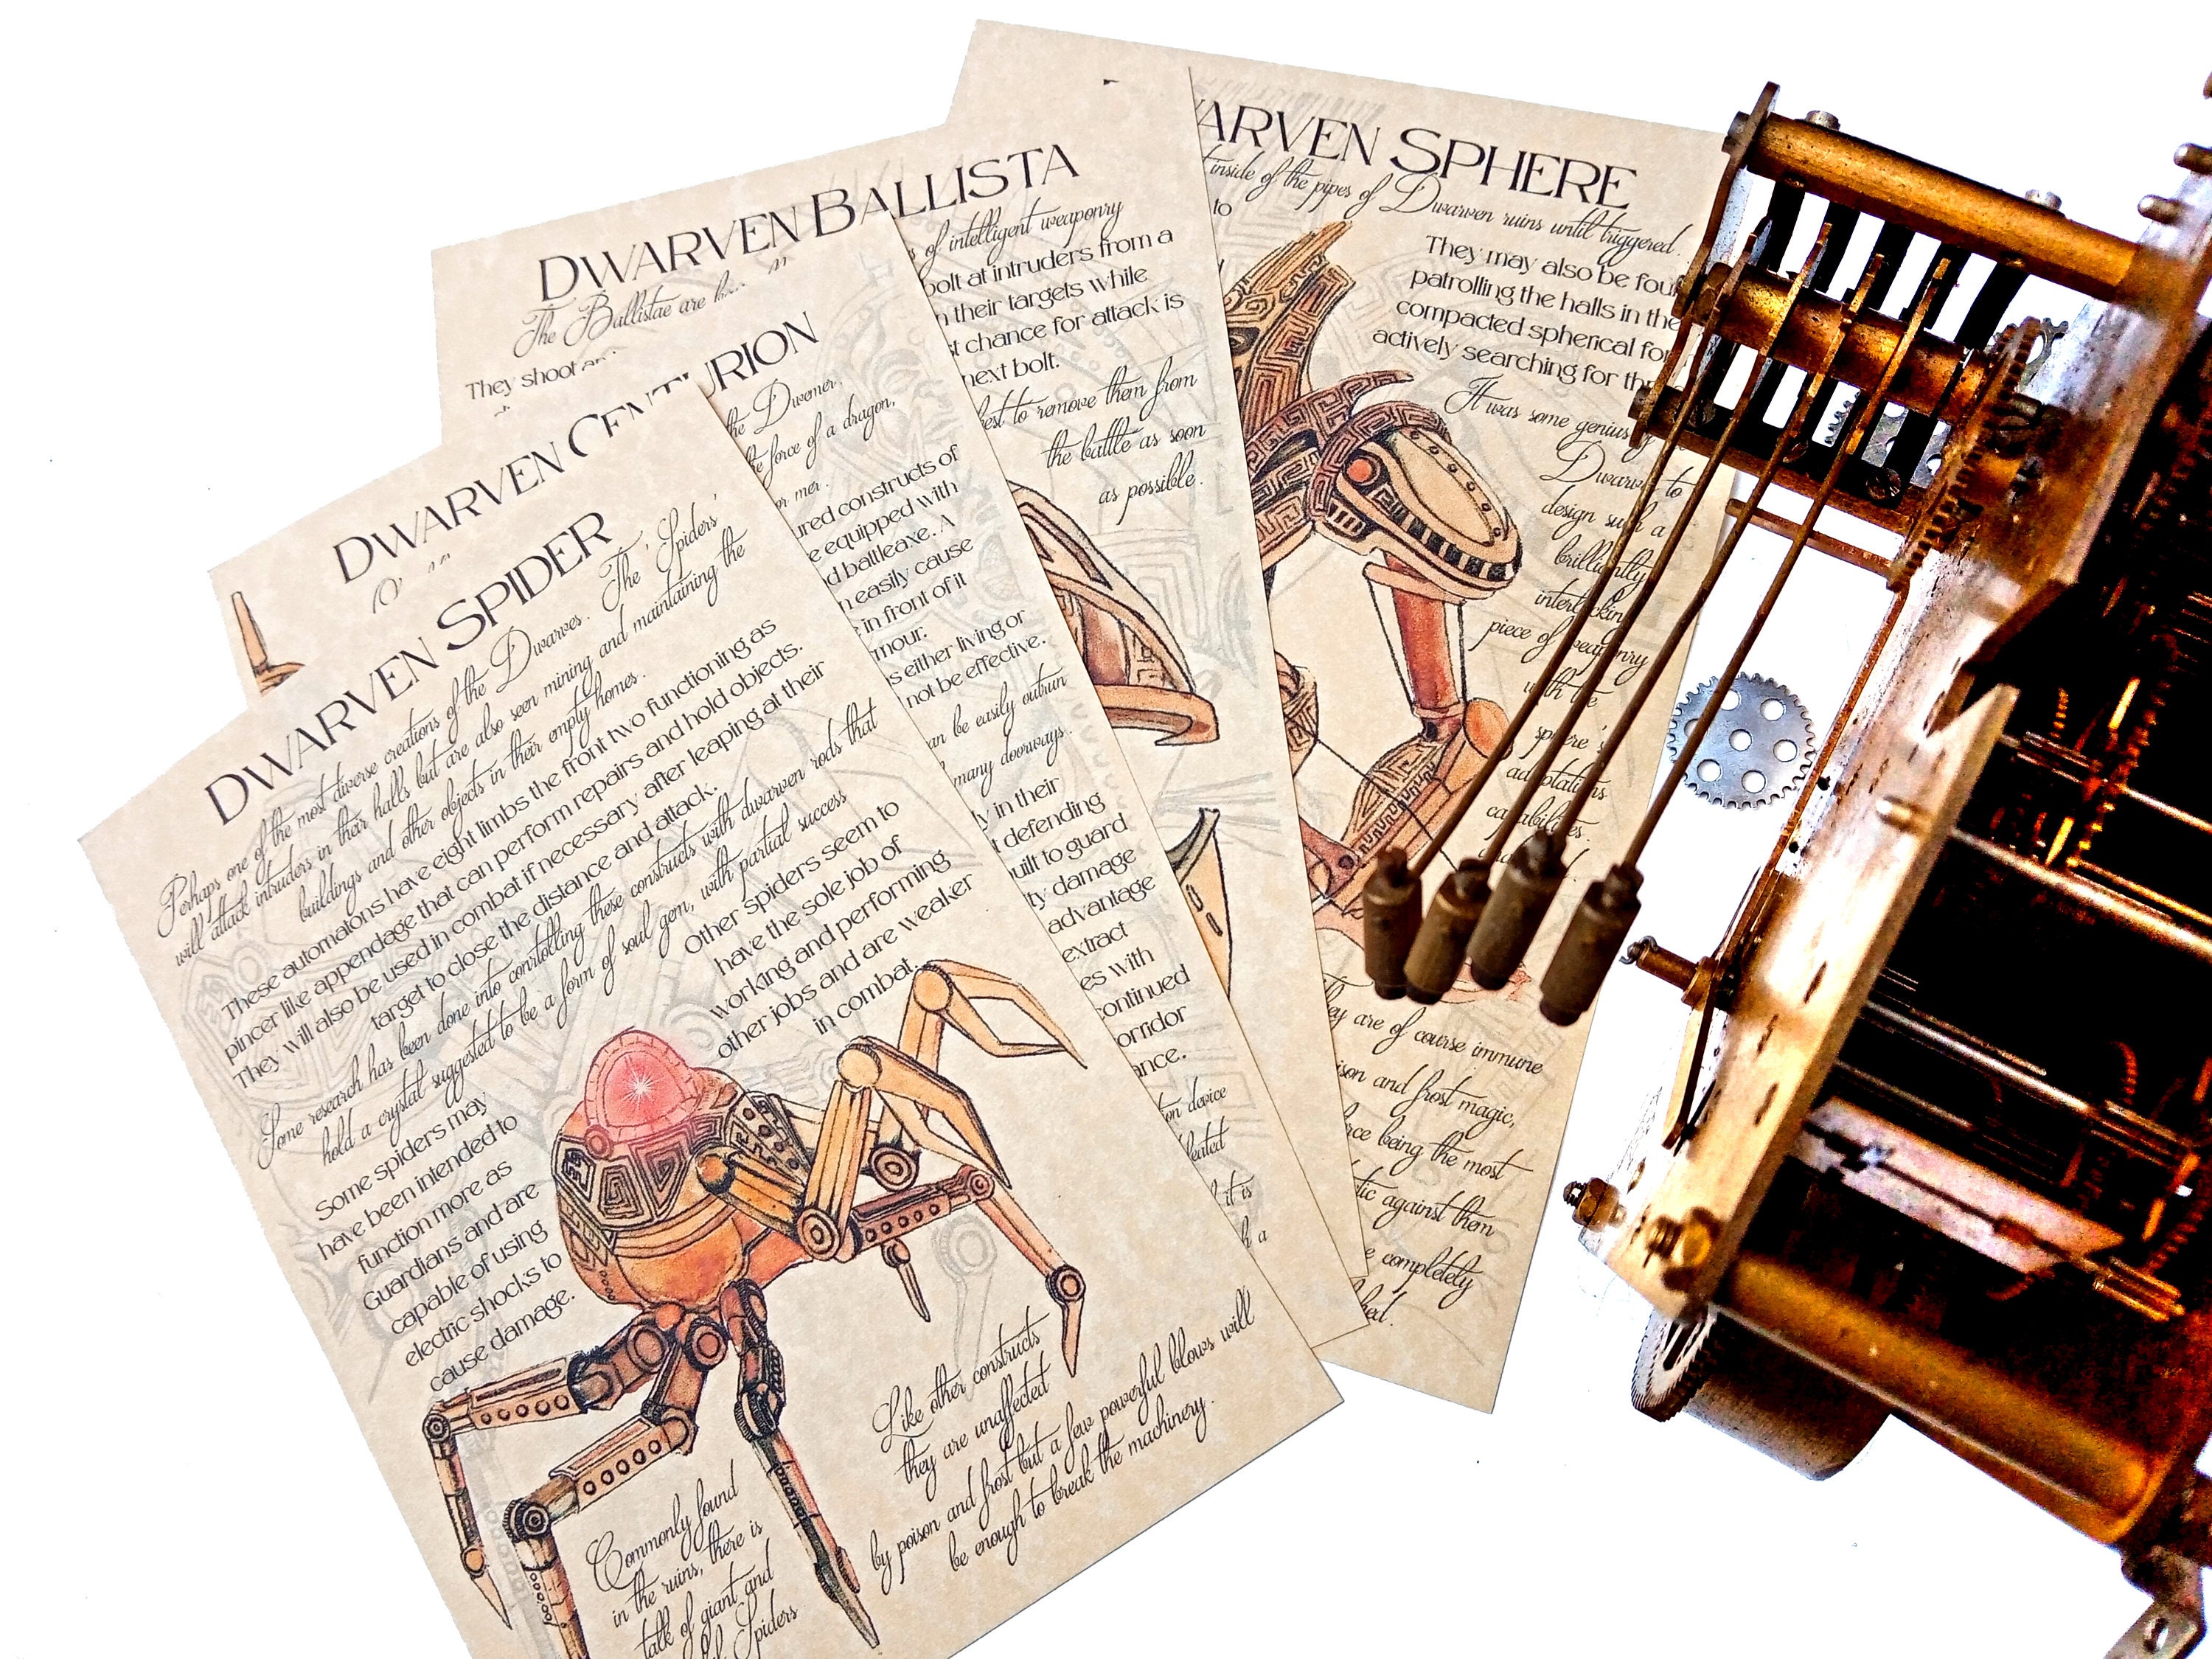 DWARVEN SPIDER
Perhaps one of the most diverse creations of the Dwarves. The Spiders'
will attack intruders in their halls but are also seen mining and maintaining the
buildings and other objects in their empty homes.
These automatons have eight limbs the front two functioning as
pincer like appendage that can perform repairs and hold objects.
They will also be used in combat if necessary after leaping at their
target to close the distance and attack.
Some research has been done into conrtolling these constructs with dwarven rods that
hold a crystal suggested to be a form of soul gem, with partial success
Some spiders may
have been intended to
function more as
Guardians and are
capable of using
electric shocks to
cause damage.
Other spiders seem to
have the sole job of
working and performing
other jobs and are weaker
in combat.
Like other constructs
they are unaffected
by poison and frost but a few powerful blows will
be enough to break the machinery.
Commonly found
in the ruins, there is
talk of giant and
Spiders
DWARVEN CENTURION
the Dwemer.
the force of a dragon,
or mer.
ured constructs of
e equipped with
d battleaxe. A
n easily cause
e in front of it
mour.
s either living or
not be effective.
an be easily outrun
many doorways.
ly in their
t defending
uilt to guard
ty damage
advantage
extract
es with
continued
orridor
ance.
on device
leated
it is
h a
DWARVEN BALLISTA
The Ballistae are
of intelligent weaponry
They shoot
bolt at intruders from a
n their targets while
st chance for attack is
next bolt.
best to remove them from
the battle as soon
as possible.
ARVEN SPHERE
inside of the pipes of Dwarven ruins until triggered.
to
They may also be foun
patrolling the halls in the
compacted spherical for
actively searching for th
It was some genius
Dwarven to
design such a
brilliantly
interlocking
piece of weaponry
with the
sphere's
adaptations
capabilities.
hey are of course immune
ison and frost magic,
rce being the most
tic against them
e completely
ked.